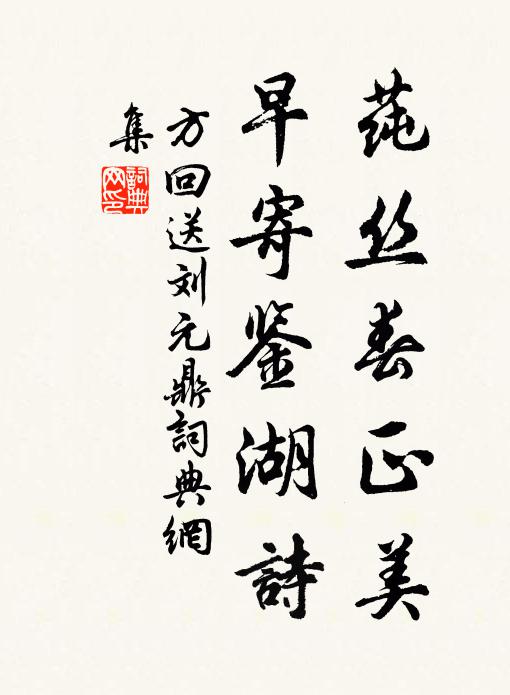 莼丝春正美
早寄鉴湖詩
方回送刘元鼎詞典網
集
詞典
网印